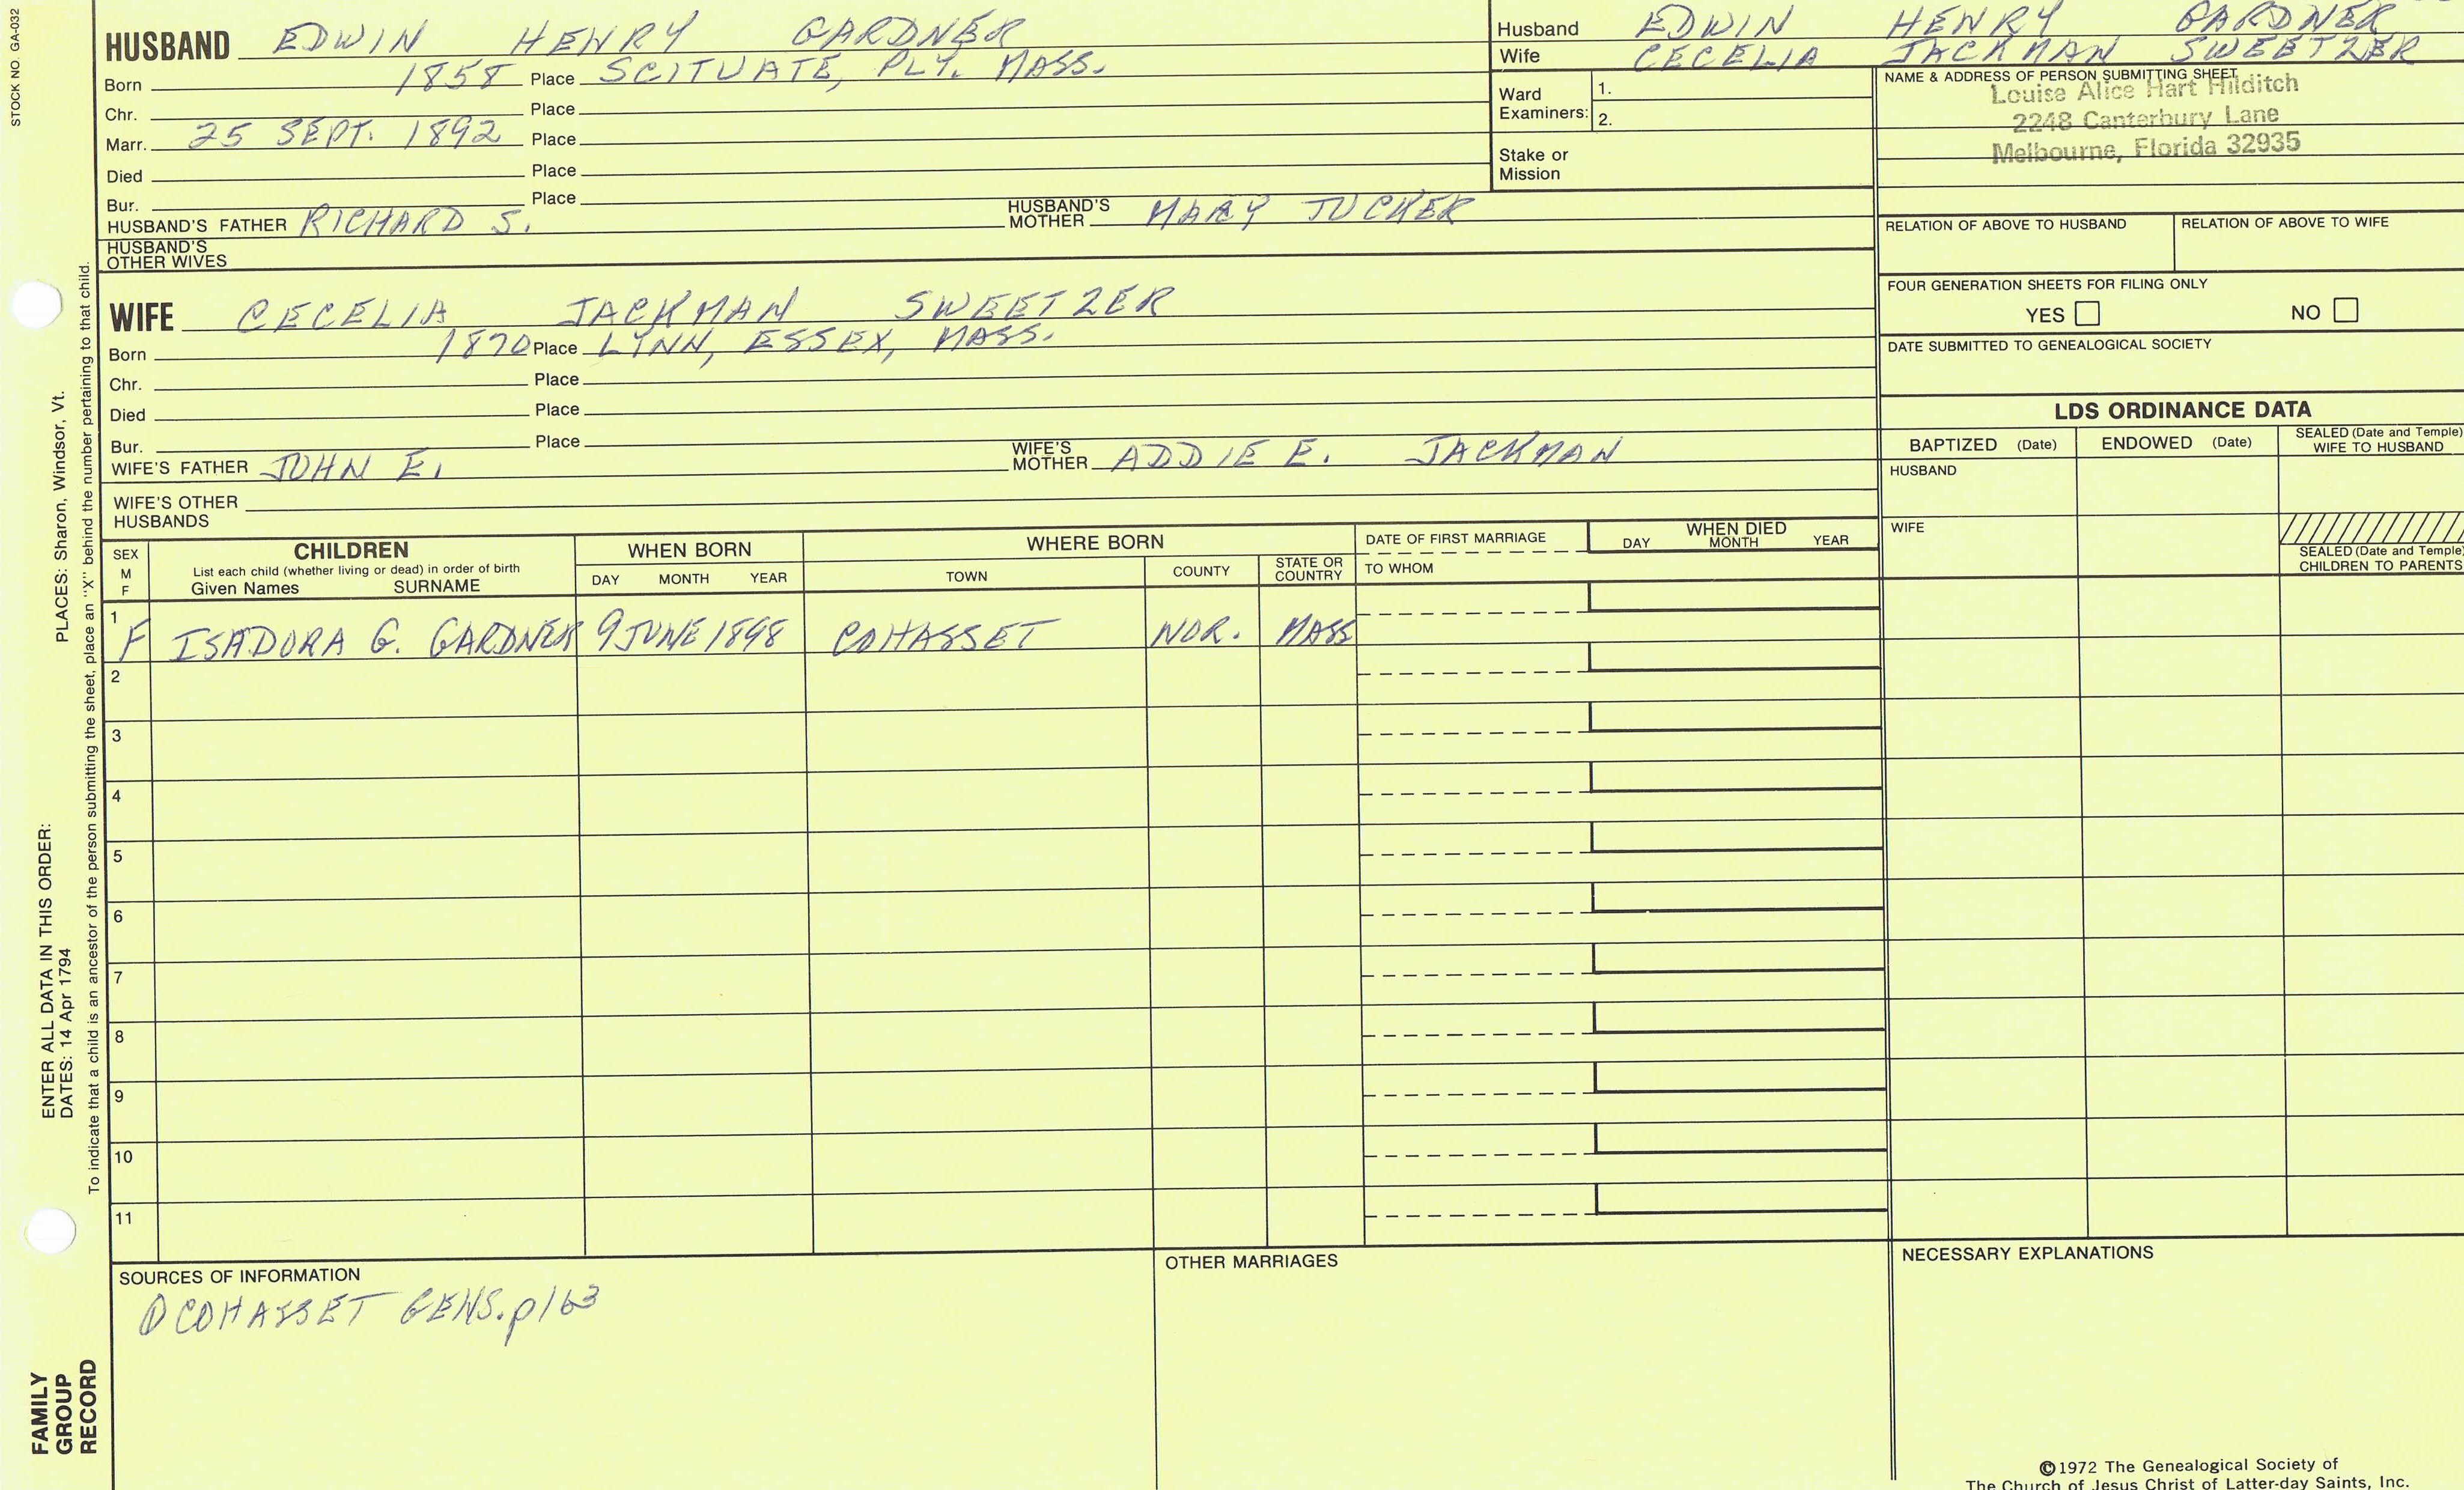 STOCK NO. GA-032
HUSBAND EDWIN HENRY GARDNER
Born 1858 Place SCITUATE, PLY. MASS.
Chr. Place
Marr. 25 SEPT. 1892 Place
Died Place
Bur. Place
HUSBAND'S FATHER RICHARD S. HUSBAND'S MOTHER MARY TUCKER
HUSBAND'S OTHER WIVES
WIFE CECELIA JACKMAN SWEETZER
Born 1870 Place LYNN, ESSEX, MASS.
Chr. Place
Died Place
Bur. Place
WIFE'S FATHER JOHN E. WIFE'S MOTHER ADDIE E. JACKMAN
WIFE'S OTHER HUSBANDS
Husband EDWIN HENRY GARDNER
Wife CECELIA JACKMAN SWEETZER
Ward Examiners: 1.
2.
Stake or Mission
NAME & ADDRESS OF PERSON SUBMITTING SHEET
Louise Alice Hart Hilditch
2248 Canterbury Lane
Melbourne, Florida 32935
RELATION OF ABOVE TO HUSBAND RELATION OF ABOVE TO WIFE
FOUR GENERATION SHEETS FOR FILING ONLY
YES NO
DATE SUBMITTED TO GENEALOGICAL SOCIETY
LDS ORDINANCE DATA
BAPTIZED (Date) ENDOWED (Date) SEALED (Date and Temple) WIFE TO HUSBAND
HUSBAND
WIFE
SEALED (Date and Temple) CHILDREN TO PARENTS
SEX M F
CHILDREN
List each child (whether living or dead) in order of birth
Given Names SURNAME
WHEN BORN
DAY MONTH YEAR
WHERE BORN
TOWN COUNTY STATE OR COUNTRY
DATE OF FIRST MARRIAGE
TO WHOM
WHEN DIED
DAY MONTH YEAR
1 F ISADORA G. GARDNER 9 JUNE 1898 COHASSET NOR. MASS
2
3
4
5
6
7
8
9
10
11
SOURCES OF INFORMATION
① COHASSET GENS. p163
OTHER MARRIAGES
NECESSARY EXPLANATIONS
©1972 The Genealogical Society of
The Church of Jesus Christ of Latter-day Saints, Inc.
ENTER ALL DATA IN THIS ORDER:
DATES: 14 Apr 1794 PLACES: Sharon, Windsor, Vt.
To indicate that a child is an ancestor of the person submitting the sheet, place an "X" behind the number pertaining to that child.
FAMILY
GROUP
RECORD